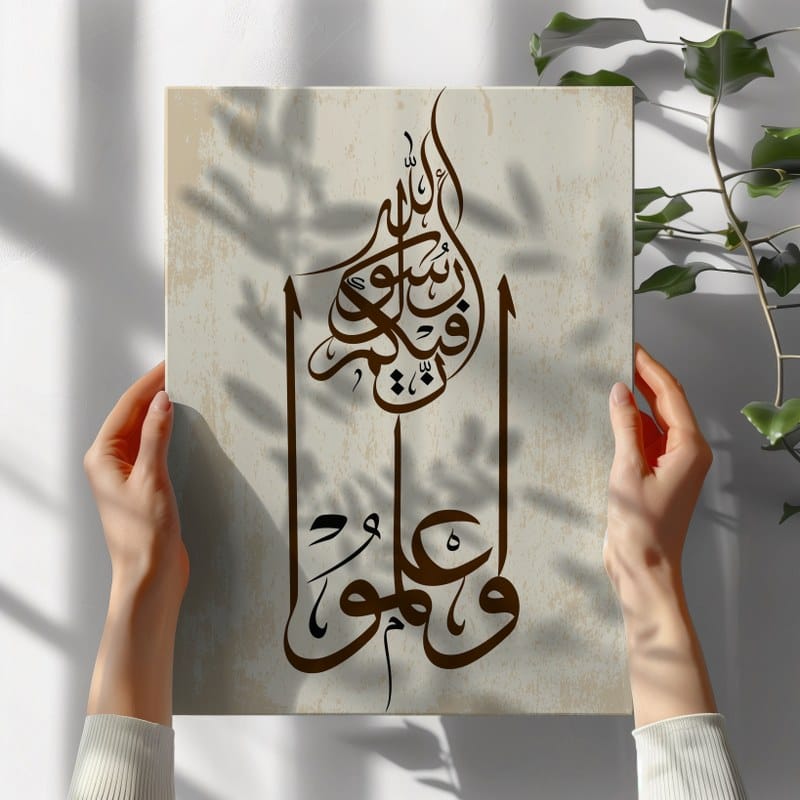 واعلموا
أن فيكم
رسول
الله